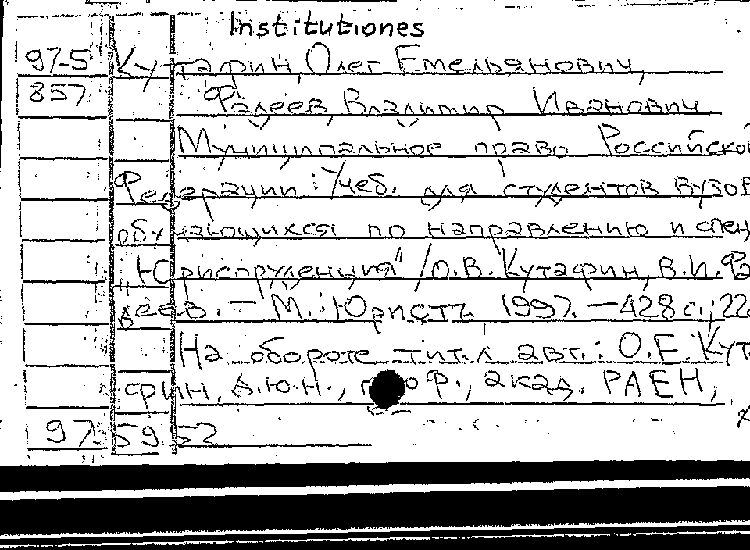 Institutiones
97-5 Кутафин, Олег Емельянович,
857 Фадеев, Владимир Иванович
Муниципальное право Российской
Федерации: Учеб. для студентов вузов
обучающихся по направлению и спец
Юриспруденция" /О.В. Кутафин, В.И. Фа
деев. — М.: Юристъ, 1997. — 428 с.; 22
На обороте тит.л авт.: О.Е. Кут
фин, д.ю.н., проф., акад. РАЕН,
97 59 52